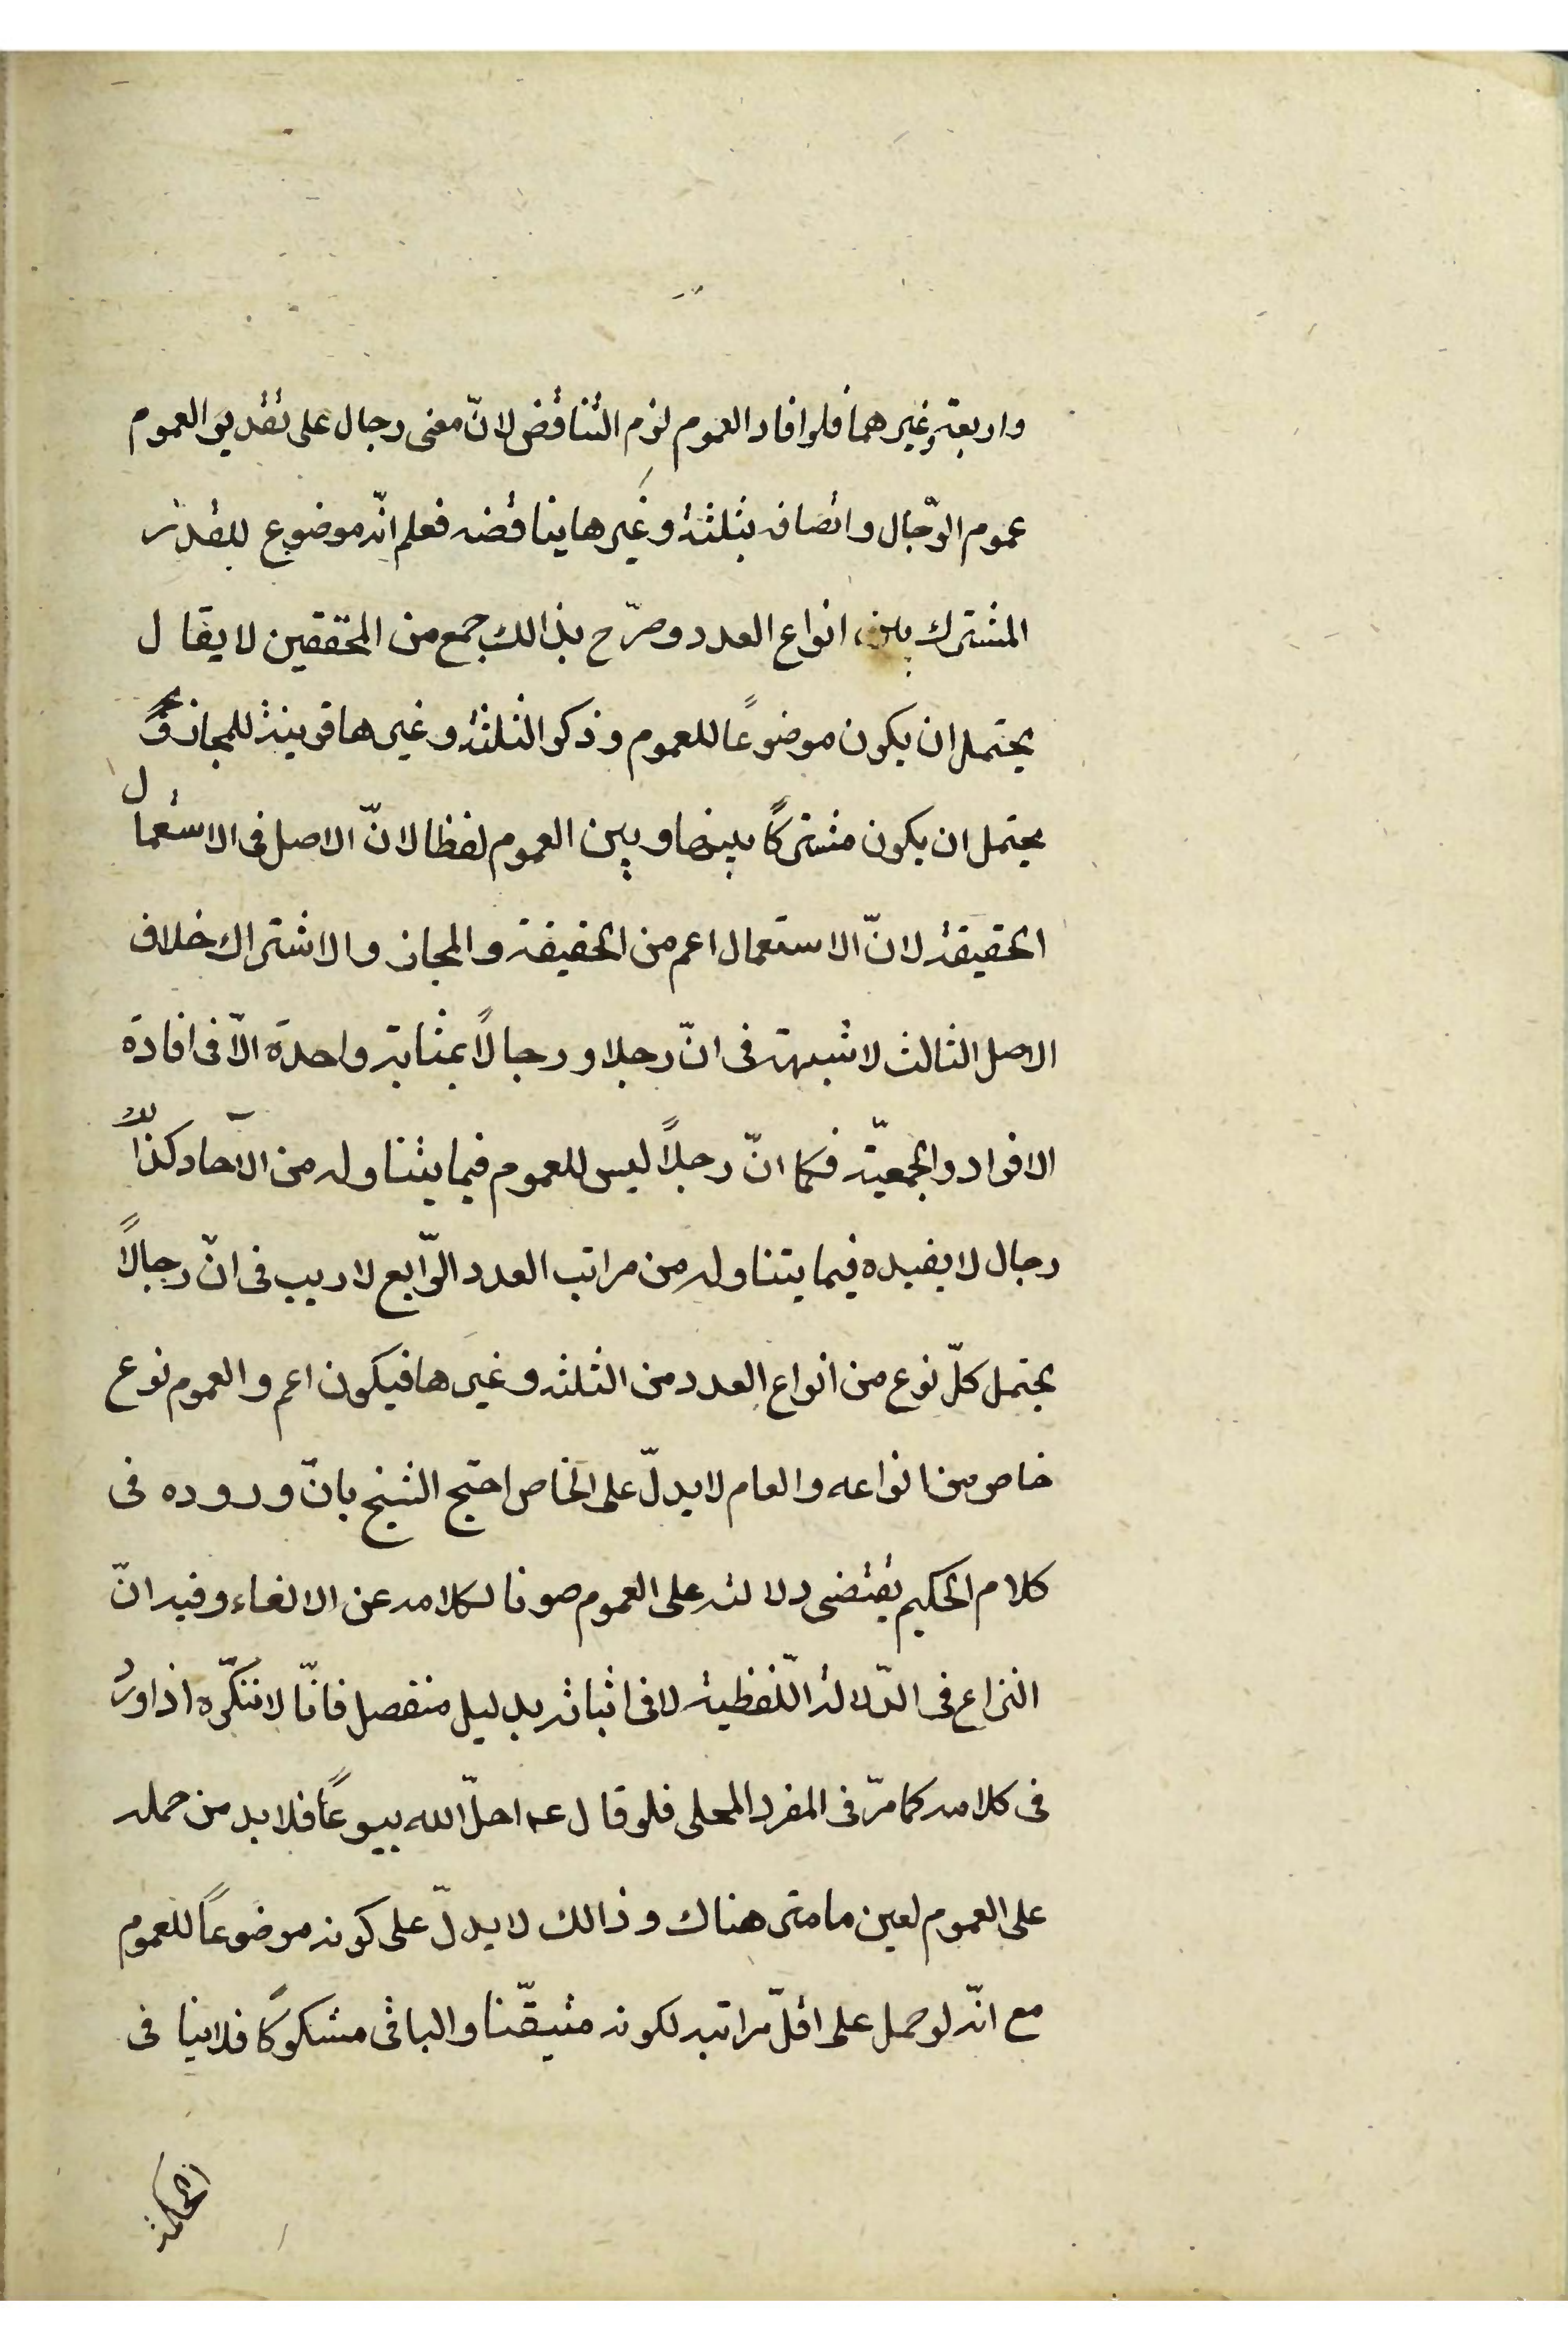 واربعة وغيرهما فلو افاد العموم لزم التناقض لانّ معنى رجال على تقدير العموم
عموم الرّجال واتصافه بثلثة وغيرها يناقضه فعلم انّه موضوع للقدر
المشترك بين انواع العدد وصرّح بذالك جمع من المحققين لا يقال
يحتمل ان يكون موضوعًا للعموم وذكر الثلثة وغيرها قرينة للمجاز
يحتمل ان يكون مشتركًا بينها وبين العموم لفظا لانّ الاصل فى الاستعمال
الحقيقة لانّ الاستعمال اعم من الحقيقة والمجاز والاشتراك خلاف
الاصل الثالث لا شبهة فى انّ رجلا ورجالًا بمثابة واحدة الّا فى افادة
الافراد والجمعيّة فكما انّ رجلًا ليس للعموم فيما يتناوله من الآحاد كذلك
رجال لا يفيده فيما يتناوله من مراتب العدد الرّابع لا ريب فى انّ رجالًا
يحتمل كلّ نوع من انواع العدد من الثلثة وغيرها فيكون اعم والعموم نوع
خاص من انواعه والعام لا يدلّ على الخاص احتج الشيخ بانّ وروده فى
كلام الحكيم يقتضى دلالته على العموم صونا لكلامه عن الالغاء وفيه انّ
النزاع فى الدّلالة اللّفظية لا فى اثباته بدليل منفصل فانّا لا ننكره اذا ورد
فى كلامه كما مرّ فى المفرد المحلى فلو قال عه احلّ الله بيوعًا فلا بد من حمله
على العموم لعين ما متى هناك وذالك لا يدلّ على كونه موضوعًا للعموم
مع انّه لو حمل على اقلّ مراتبه لكونه متيقّنا والباقى مشكوكًا فلا ينافى
الحكمة